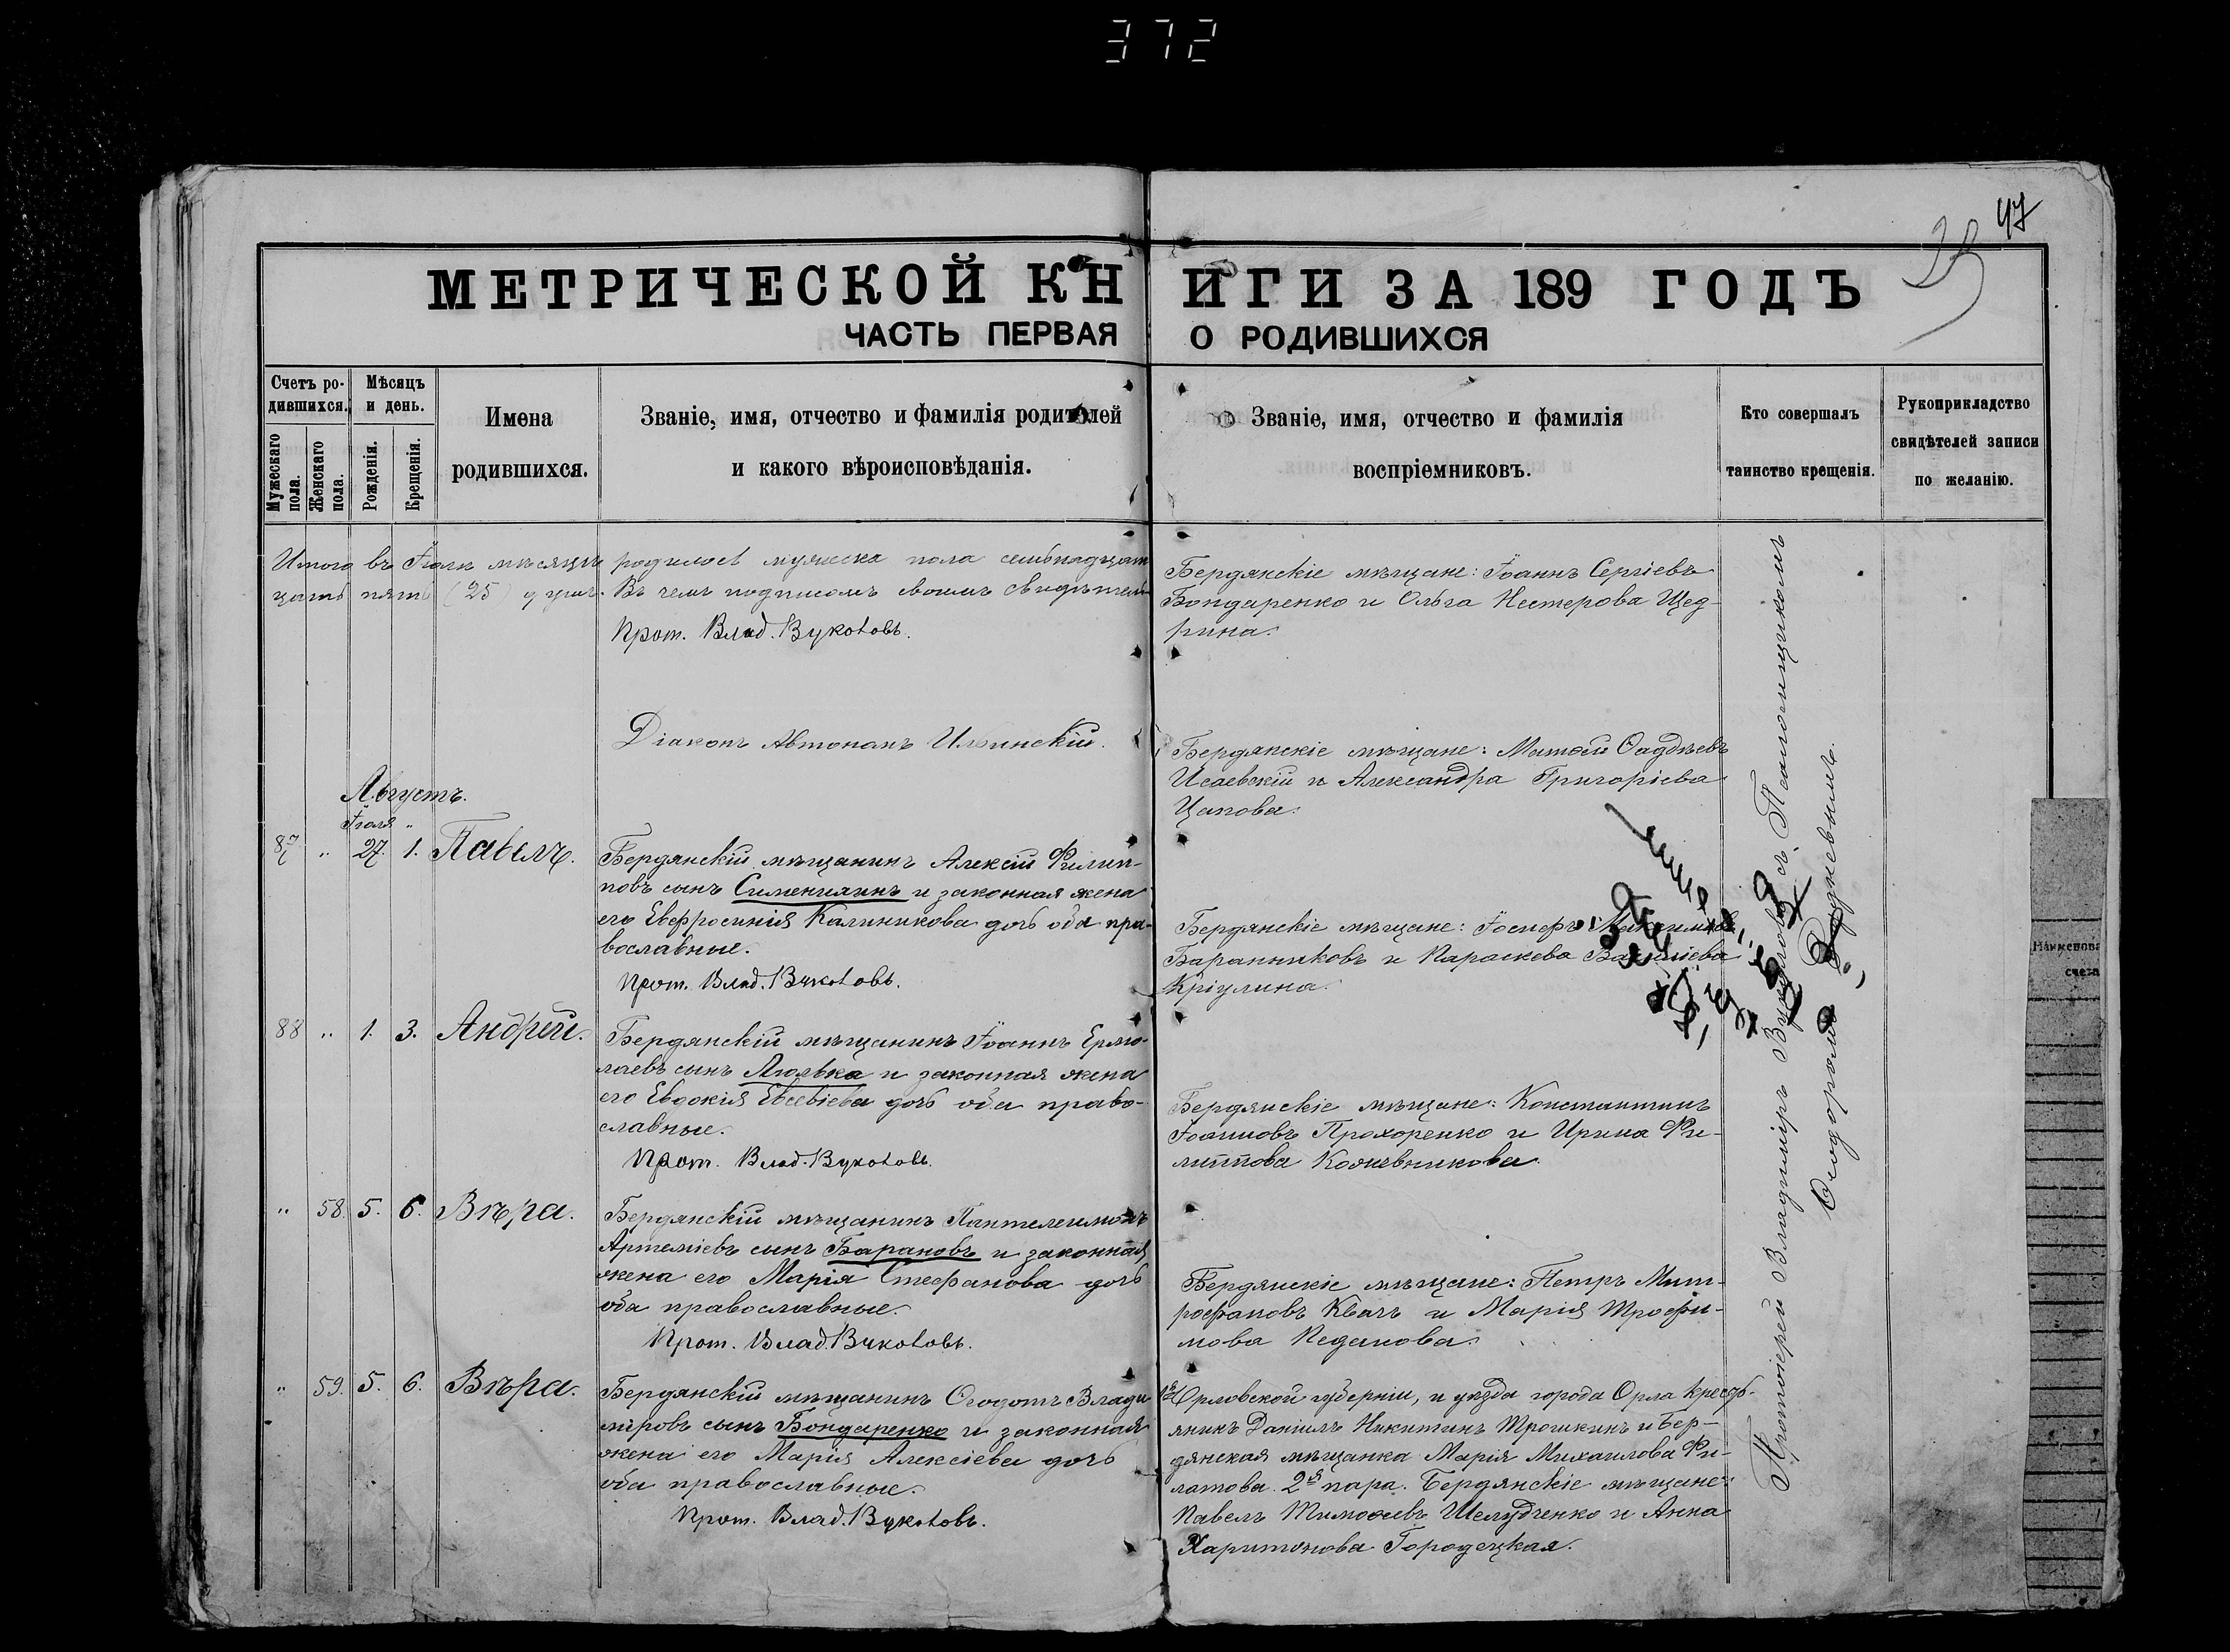 372
47
МЕТРИЧЕСКОЙ КНИГИ ЗА 189 ГОДЪ
ЧАСТЬ ПЕРВАЯ О РОДИВШИХСЯ
Счетъ ро-
дившихся.
Мужескаго пола.
Женскаго пола.
Мѣсяцъ
и день.
Рожденія.
Крещенія.
Имена
родившихся.
Званіе, имя, отчество и фамилія родителей
и какого вѣроисповѣданія.
Званіе, имя, отчество и фамилія
воспріемниковъ.
Кто совершалъ
таинство крещенія.
Рукоприкладство
свидѣтелей записи
по желанію.
Итого въ Іюлѣ мѣсяцѣ родилось мужеска пола семьнадцат
цать пять (25) душъ. Въ чемъ подписомъ своимъ свидѣтель
Прот. Влад. Вукотовъ.
Діаконъ Автономъ Ильинскій.
Августъ.
Іюля "
87 " 27. 1. Павелъ.
Бердянскій мѣщанинъ Алексій Филип-
повъ сынъ и законная жена
его Евфросинія Калиникова дочь оба пра-
вославные.
Прот. Влад. Вукотовъ.
88 " 1. 3. Андрей.
Бердянскій мѣщанинъ Іоаннъ Ермо-
лаевъ сынъ Люлька и законная жена
его Евдокія Евсевіева дочь оба право-
славные.
Прот. Влад. Вукотовъ.
" 58. 5. 6. Вѣра.
Бердянскій мѣщанинъ Пантелеимонъ
Артеміевъ сынъ Барановъ и законная
жена его Марія Стефанова дочь
оба православные.
Прот. Влад. Вукотовъ.
" 59. 5. 6. Вѣра.
Бердянскій мѣщанинъ Ѳеодотъ Влади
міровъ сынъ Бондаренко и законная
жена его Марія Алексіева дочь
оба православные.
Прот. Влад. Вукотовъ.
Бердянскіе мѣщане: Іоаннъ Сергіевъ
Бондаренко и Ольга Нестерова Щед-
рина.
Бердянскіе мѣщане: Матѳей Ѳаддѣевъ
Исаевскій и Александра Григоріева
Цапова.
Бердянскіе мѣщане: Іосифъ Максимовъ
Баранниковъ и Параскева Василіева
Кріулина.
Бердянскіе мѣщане: Константинъ
Іоанновъ Прохоренко и Ирина Фи-
липпова Кожевникова.
Бердянскіе мѣщане: Петръ Мит-
рофановъ Квачъ и Марія Трофи-
мова Педанова.
Орловской губерніи, и уѣзда города Орла кресть-
янинъ Даніилъ Никитинъ Трошкинъ и Бер-
дянская мѣщанка Марія Михаилова Фи-
латова. 2я пара. Бердянскіе мѣщане:
Павелъ Тимоѳеевъ Шелудченко и Анна
Харитонова Городецкая.
Протоіерей Владиміръ Вукотовъ съ Псаломщикомъ
Ѳеодоромъ
Наименова
счета